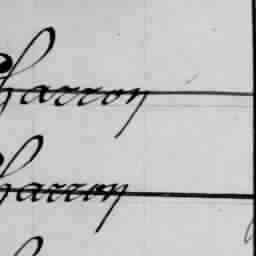 Charron
Charron